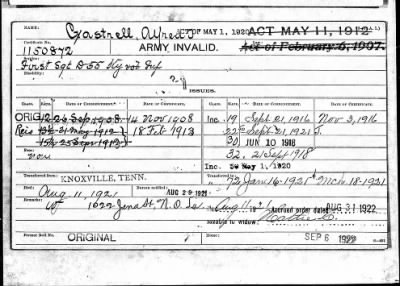 Gastrell, Alfred ACT MAY 1, 1920 ACT MAY 11, 1912
Certificate No. 1150872 ARMY INVALID. Act of February 6, 1907.
First Sgt D 55 Ky vol Inf
Disability:
ISSUES.
CLASS. RATE. DATE OF COMMENCEMENT. DATE OF CERTIFICATE. CLASS. RATE. DATE OF COMMENCEMENT. DATE OF CERTIFICATE.
ORIG 12 26 Sep 1908 14 Nov 1908 Inc 19 Sept 21, 1916 Nov 3, 1916
Reis 21 May 1912 18 Feb 1913 Sept. 21, 1921
25 Sep 1912 30 JUN 10 1918
32. 21 Sept 1918
Inc. 50 May 1, 1920
Transferred from KNOXVILLE, TENN. 72 Jan 16-1921 Mch. 18-1921
Aug 11, 1921 AUG 29 1921
Remarks: 1622 Jena St. N.O. La. Aug 11 Accrued order dated AUG 31 1922
payable to widow:
Former Roll No. ORIGINAL SEP 6 1922